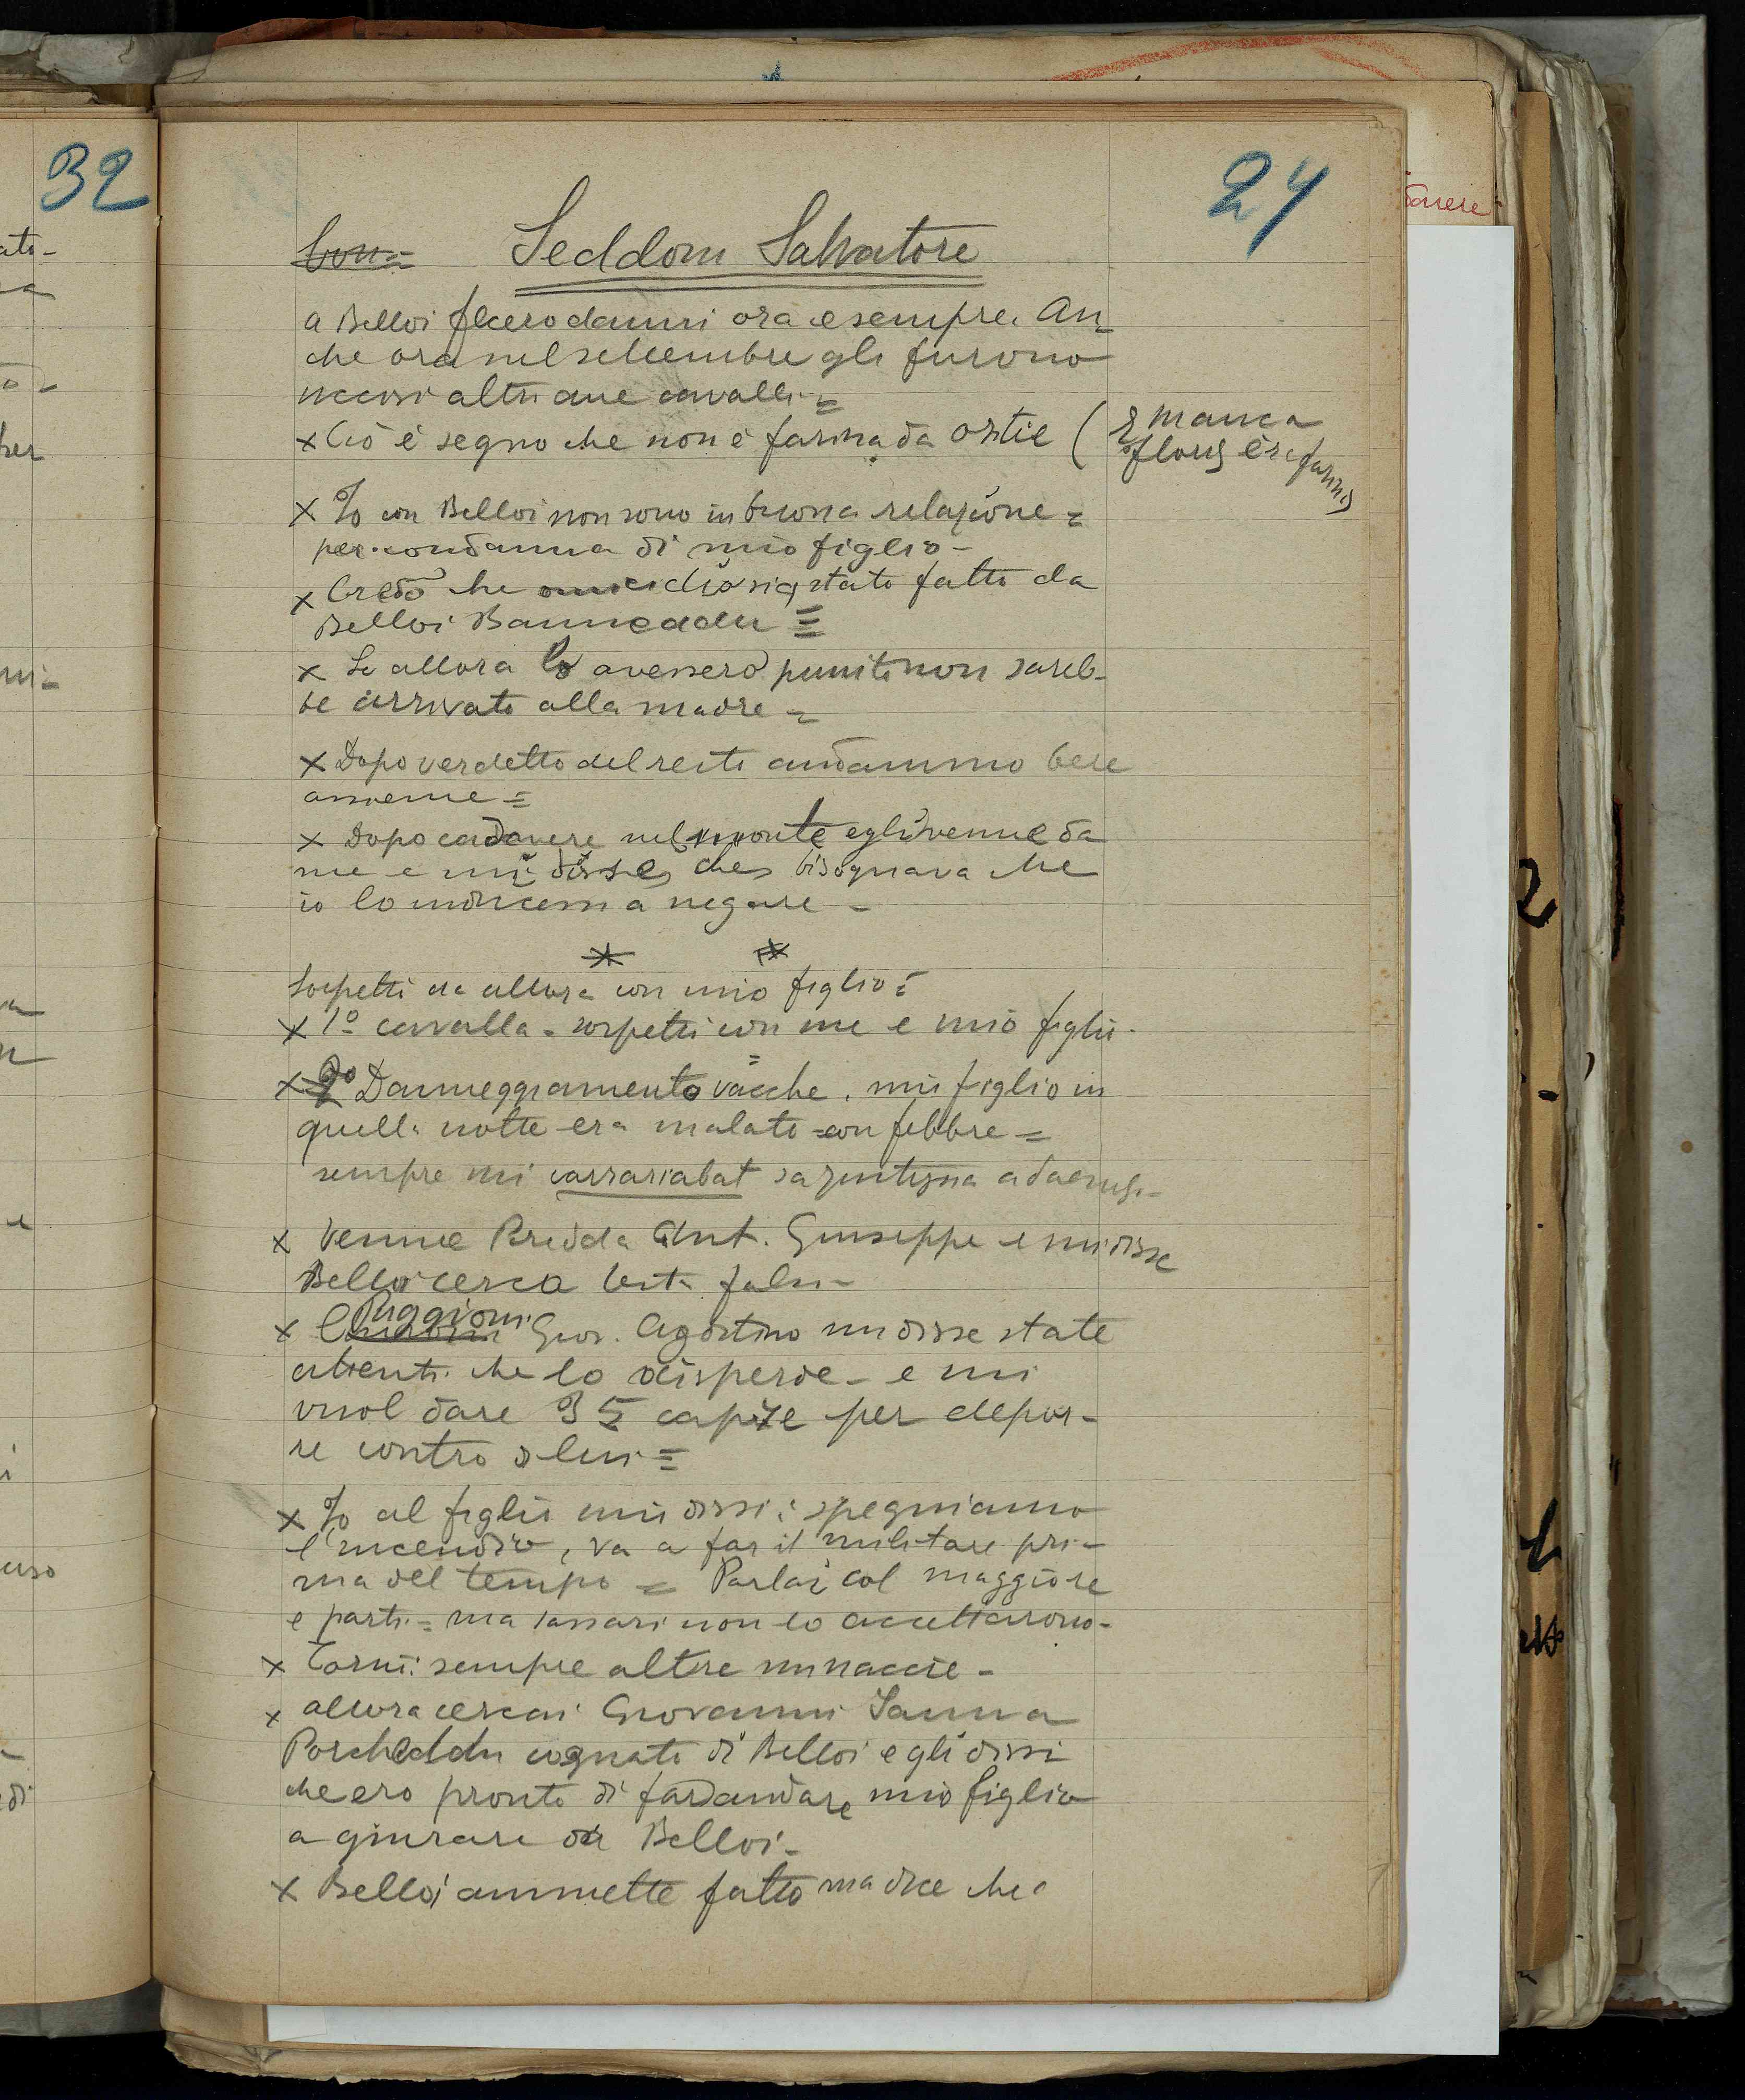 32
24
Con= Seddone Salvatore
a Belloi fecero danni ora e sempre. An_
che ora nel settembre gli furono
uccisi altri due cavalli=
x Ciò è segno che non è farina da ostie (
E manca
flous è re farina
x Io con Belloi non sono in buona relazione=
per condanna di mio figlio-
x Credo che omicidio sia stato fatto da
Belloi Banneddu=
x Se allora lo avessero punito non sareb-
be arrivato alla madre=
x Dopo verdetto del resto andammo bere
assieme=
x Dopo cadavere nel monte egli venne da
me e mi disse che bisognava che
io lo inducessi a negare-
Sospetti da allora con mio figlio:
x 1º cavalla- sospetti con me e mio figlio-
x 2º Danneggiamento vacche. mio figlio in
quella notte era malato con febbre=
sempre mi carrariabat sa
x Venne Predda Ant. Giuseppe e mi disse
Belloi cerca testi falsi-
x Puggioni Giov. Agostino mi disse state
attenti che lo disperde- e mi
vuol dare 35 capre per depor-
re contro di lui=
x Io al figlio mio dissi: spegniamo
l'incendio, va a far il militare pri-
ma del tempo= Parlai col maggiore
e partì= ma Sassari non lo accettarono-
x Tornò: sempre altre minaccie-
x allora cercai Giovanni Sanna
Porcheddu cognato di Belloi e gli dissi
che ero pronto di far andare mio figlio
a giurare da Belloi-
x Belloi ammette fatto ma dice che